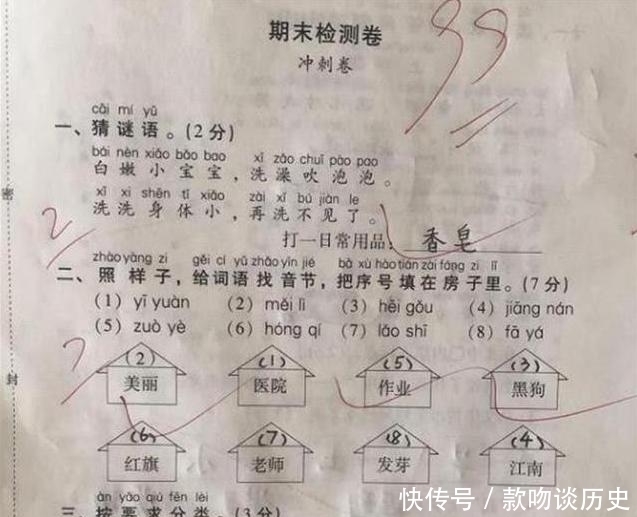 期末检测卷
冲刺卷
99
cāi mí yǔ
一、猜谜语。(2分)
bái nèn xiǎo bǎo bao xǐ zǎo chuī pào pao
白嫩小宝宝,洗澡吹泡泡。
xǐ xi shēn tǐ xiǎo zài xǐ bú jiàn le
洗洗身体小,再洗不见了。
2
打一日常用品:香皂
zhào yàng zi gěi cí yǔ zhǎo yīn jié bǎ xù hào tián zài fáng zi lǐ
二、照样子,给词语找音节,把序号填在房子里。(7分)
(1) yī yuàn (2) měi lì (3) hēi gǒu (4) jiāng nán
(5) zuò yè (6) hóng qí (7) lǎo shī (8) fā yá
7
(2) (1) (5) (3)
美丽 医院 作业 黑狗
(6) (7) (8) (4)
红旗 老师 发芽 江南
àn yāo qiú fēn lèi
三、按要求分类。(3分)
密
封
快传号/款吻谈历史